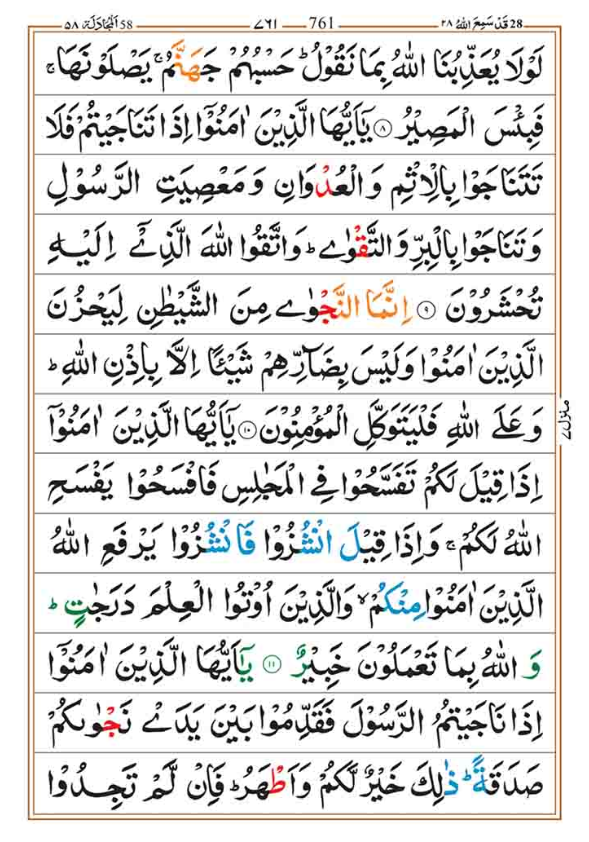 28 قَدْ سَمِعَ اللهُ ٢٨ 761 ٧٦١ 58 اَلْمُجَادَلَة ٥٨
لَوْلَا يُعَذِّبُنَا اللّٰهُ بِمَا نَقُوْلُ ؕ حَسْبُهُمْ جَهَنَّمُ ۚ يَصْلَوْنَهَا ۚ
فَبِئْسَ الْمَصِيْرُ ۝٨ يٰۤاَيُّهَا الَّذِيْنَ اٰمَنُوْۤا اِذَا تَنَاجَيْتُمْ فَلَا
تَتَنَاجَوْا بِالْاِثْمِ وَالْعُدْوَانِ وَمَعْصِيَتِ الرَّسُوْلِ
وَتَنَاجَوْا بِالْبِرِّ وَالتَّقْوٰى ؕ وَاتَّقُوا اللّٰهَ الَّذِيْۤ اِلَيْهِ
تُحْشَرُوْنَ ۝٩ اِنَّمَا النَّجْوٰى مِنَ الشَّيْطٰنِ لِيَحْزُنَ
الَّذِيْنَ اٰمَنُوْا وَلَيْسَ بِضَآرِّهِمْ شَيْئًا اِلَّا بِاِذْنِ اللّٰهِ ؕ
وَعَلَى اللّٰهِ فَلْيَتَوَكَّلِ الْمُؤْمِنُوْنَ ۝١٠ يٰۤاَيُّهَا الَّذِيْنَ اٰمَنُوْۤا
اِذَا قِيْلَ لَكُمْ تَفَسَّحُوْا فِي الْمَجٰلِسِ فَافْسَحُوْا يَفْسَحِ
اللّٰهُ لَكُمْ ۚ وَاِذَا قِيْلَ انْشُزُوْا فَانْشُزُوْا يَرْفَعِ اللّٰهُ
الَّذِيْنَ اٰمَنُوْا مِنْكُمْ ۙ وَالَّذِيْنَ اُوْتُوا الْعِلْمَ دَرَجٰتٍ ؕ
وَاللّٰهُ بِمَا تَعْمَلُوْنَ خَبِيْرٌ ۝١١ يٰۤاَيُّهَا الَّذِيْنَ اٰمَنُوْۤا
اِذَا نَاجَيْتُمُ الرَّسُوْلَ فَقَدِّمُوْا بَيْنَ يَدَيْ نَجْوٰىكُمْ
صَدَقَةً ؕ ذٰلِكَ خَيْرٌ لَّكُمْ وَاَطْهَرُ ؕ فَاِنْ لَّمْ تَجِدُوْا
منزل ٧